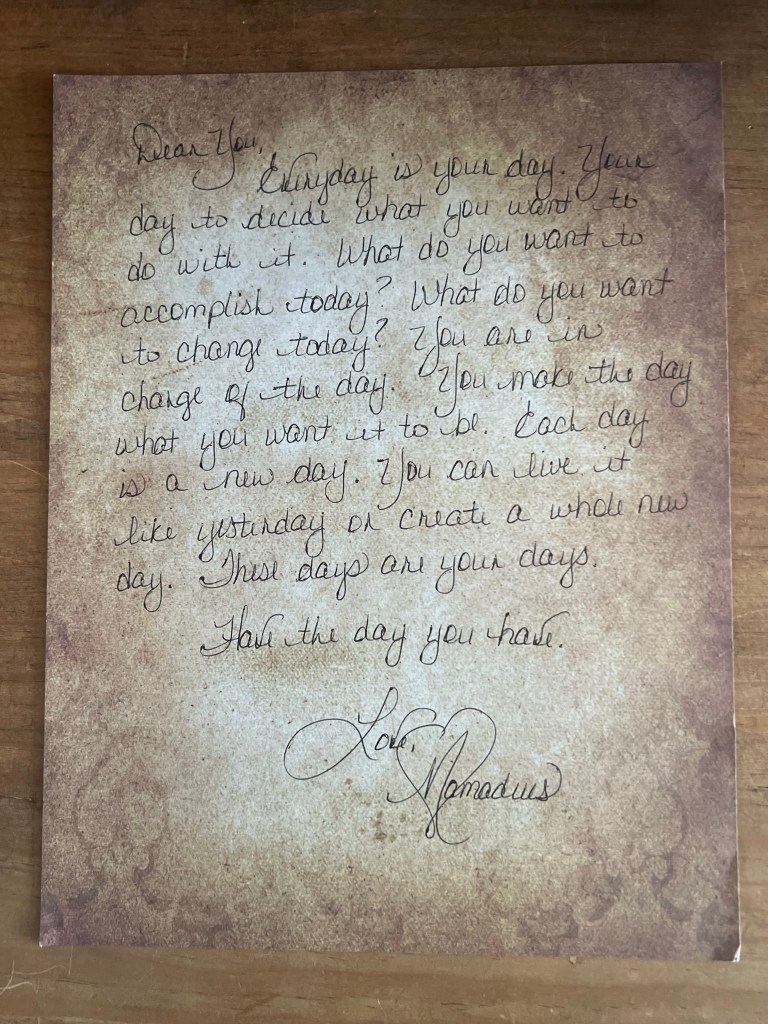 Dear You,
Everyday is your day. Your
day to decide what you want to
do with it. What do you want to
accomplish today? What do you want
to change today? You are in
charge of the day. You make the day
what you want it to be. Each day
is a new day. You can live it
like yesterday or create a whole new
day. These days are your days.
Have the day you have.
Love,